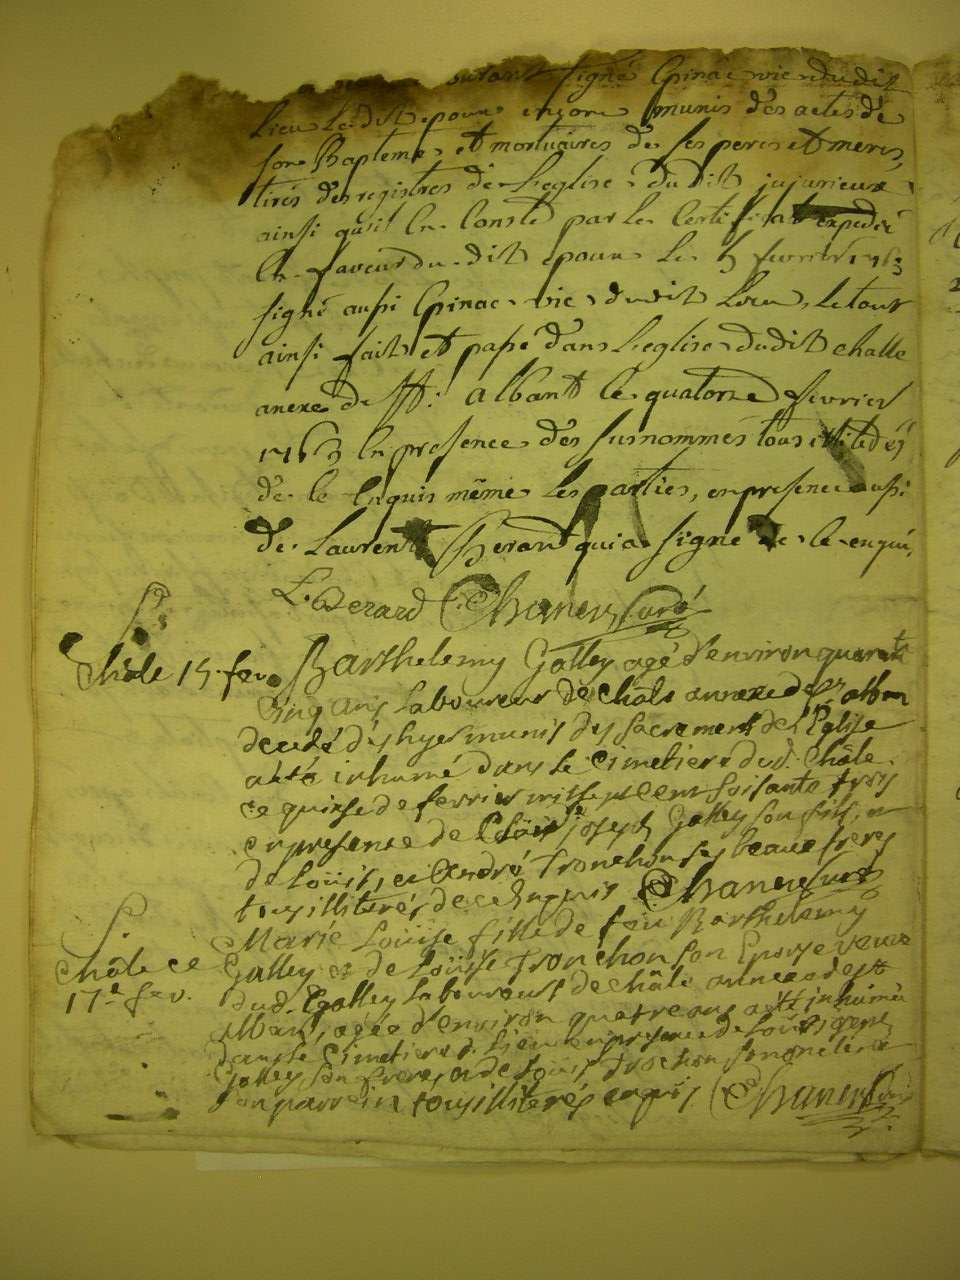 signé Epinac vic dudit
lieu ledit pour encore munis des actes de
son Bapteme et mortuaires de ses peres et meres,
tirés des registres de l'eglise du dit jujurieux
ainsi qu'il en Conste par le Certificat expedié
en faveur du dit pour le 5 fevrier 1763
signé aussi Epinac vic dudit Lieu, le tout
ainsi fait et passé dans l'eglise dudit challe
anexe de st: albant le quatorze fevrier
1763 en presence des susnommés tous illiterés
de ce Enquis même les parties, en presence aussi
de Laurent Berard qui a signé de ce enquis,
L. Berard Chanex Curé
S.
Châle 15 fev. Barthelemy Galley agé d'environ quarante
cinq ans laboureur de châle annexe de st alban
decedé d'hyer munis des sacrement de l'Eglise
a été inhumé dans le Cimetiere dud. Châle
ce quinse de fevrier mille sept cent soisante trois
en presence de joseph Galley son fils,
de Loüis, et André Tronchon ses beaux freres
tous illiterés de ce Enquis Chanex Curé
S.
Châle ce
17e fev.
Marie Loüise fille de feu Barthelemy
Galley et de Loüise Tronchon son Epouse veuve
dud. Galley laboureur de châle annexe de st
Alban, agée d'environ quatre ans a été inhumée
dans le Cimetiere d. Lieu en presence de
Galley son frere, et de Loüis Tronchon son oncle et
son parrein tous illiterés enquis Chanex Curé